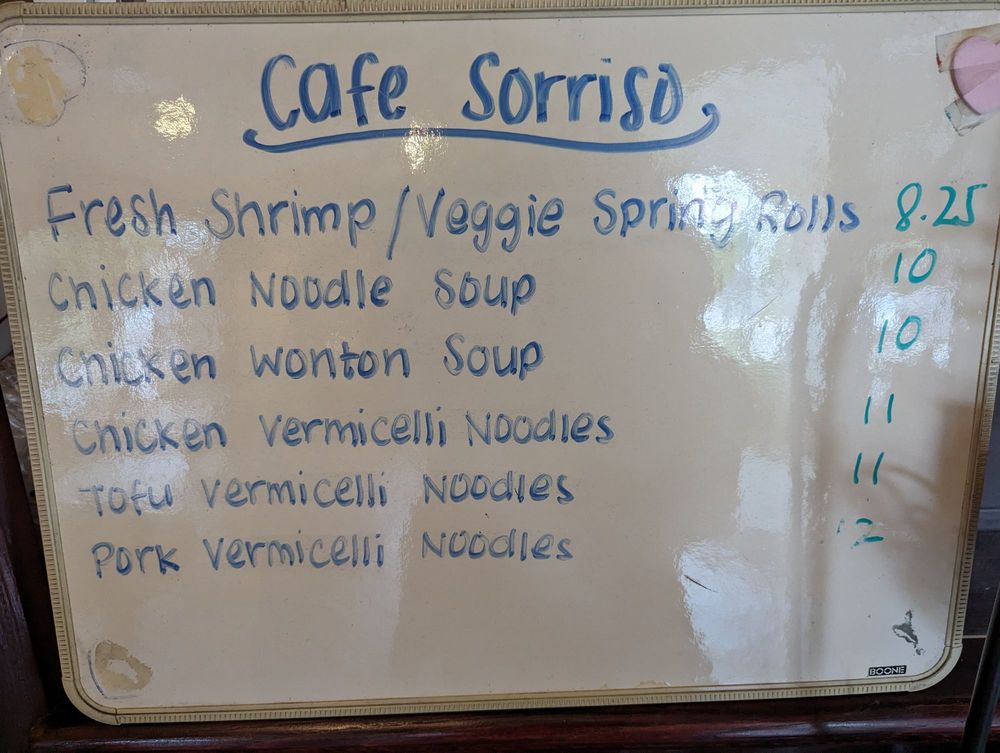 Cafe Sorriso
Fresh Shrimp/Veggie Spring Rolls 8.25
Chicken Noodle Soup 10
Chicken Wonton Soup 10
Chicken Vermicelli Noodles 11
Tofu Vermicelli Noodles 11
Pork Vermicelli Noodles 12
BOONE